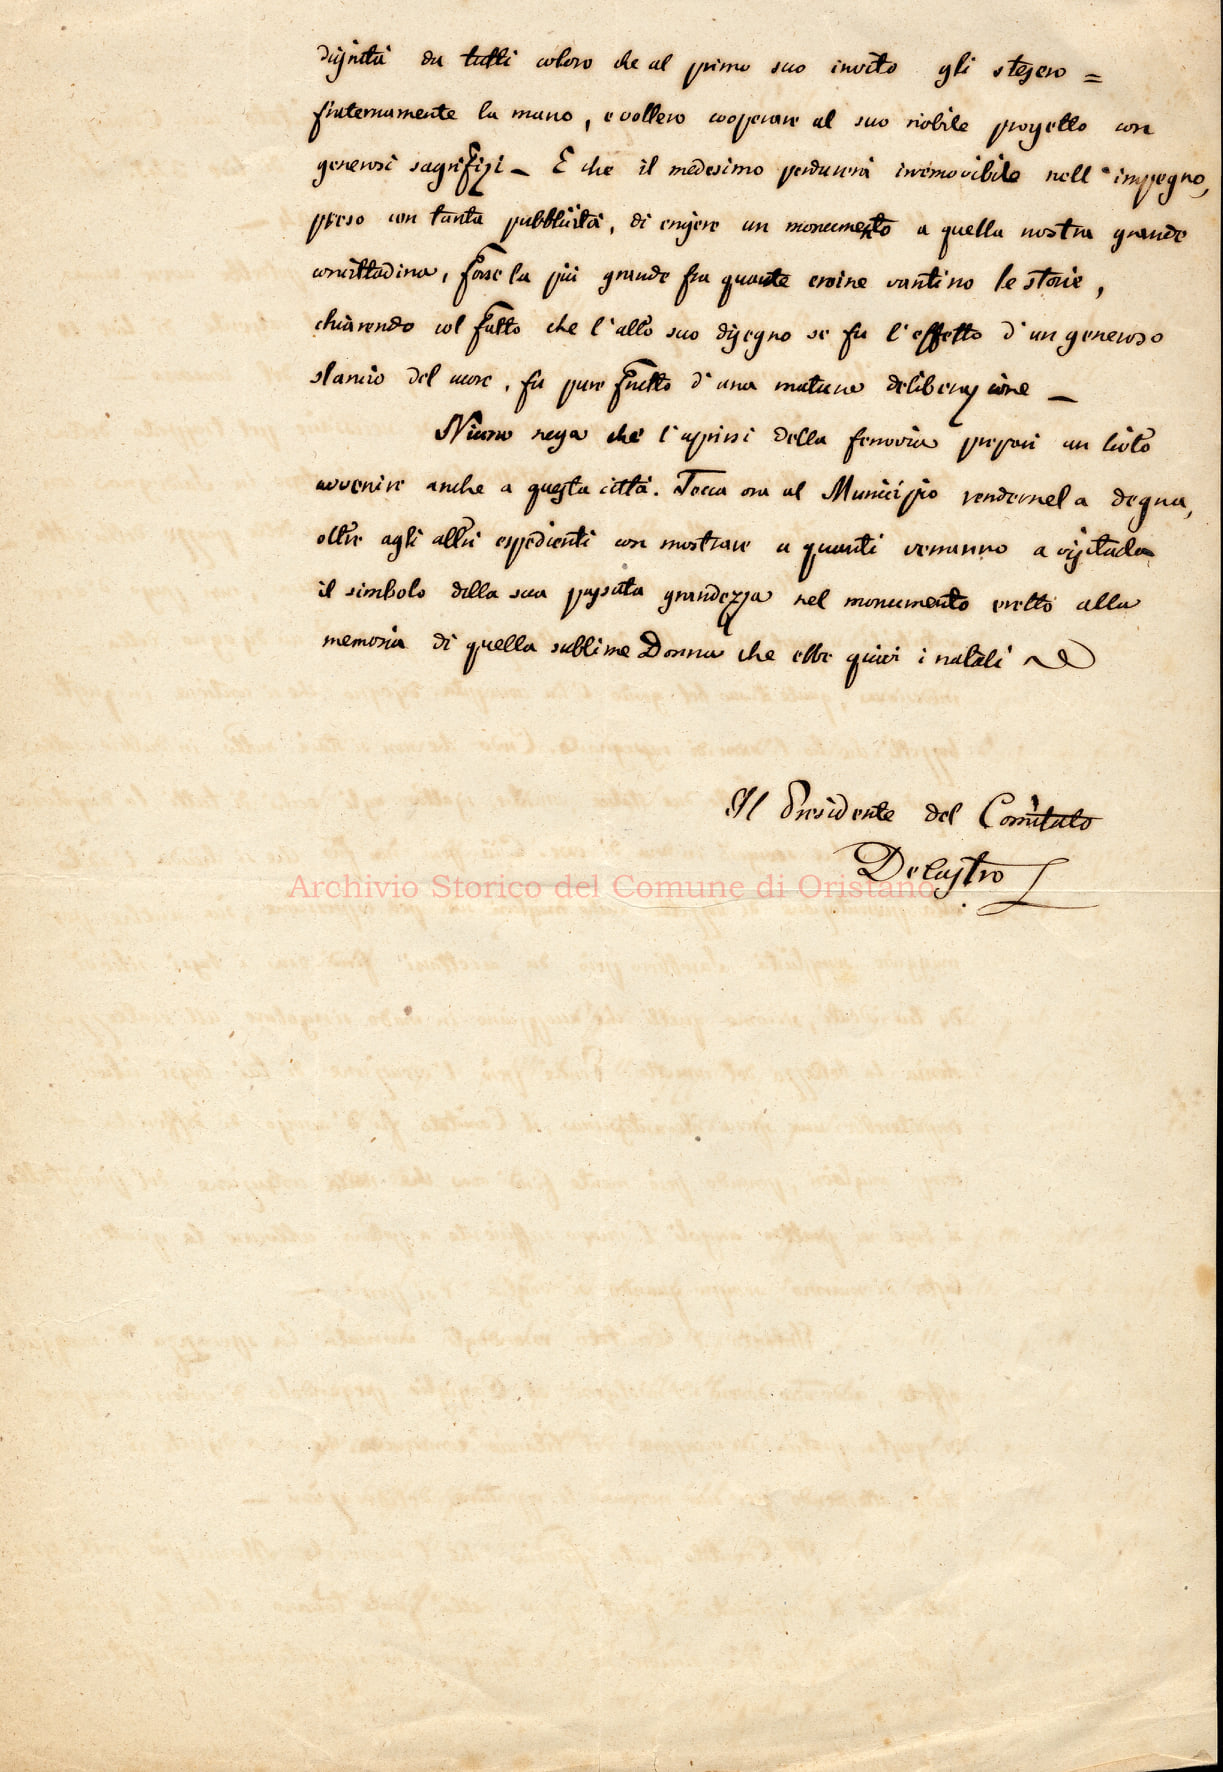 dignità da tutti coloro che al primo suo invito gli stesero =
fraternamente la mano, e vollero cooperare al suo nobile progetto con
generosi sagrifizi — E che il medesimo perdurerà iremovibile nell'impegno,
preso con tanta pubblicità, di erigere un monumento a quella nostra grande
concittadina, forse la più grande fra quante eroine vantino le storie,
chiarendo col fatto che l'alto suo disegno se fu l'effetto d'un generoso
slancio del cuore, fu pure frutto d'una matura deliberazione —
Niuno nega che l'aprirsi della ferrovia prepari un lieto
avvenire anche a questa città. Tocca ora al Municipio rendernela degna,
oltre agli altri espedienti con mostrare a quanti verranno a visitarla
il simbolo della sua passata grandezza nel monumento eretto alla
memoria di quella sublime Donna che ebbe quivi i natali
Il Presidente del Comitato
DeCastro
Archivio Storico del Comune di Oristano